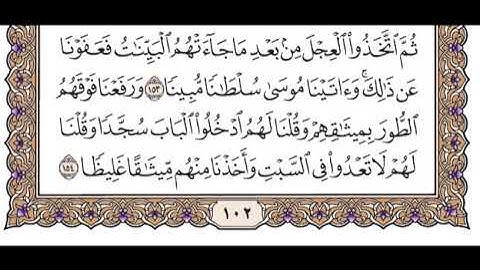 ثُمَّ ٱتَّخَذُوا۟ ٱلْعِجْلَ مِنۢ بَعْدِ مَا جَآءَتْهُمُ ٱلْبَيِّنَٰتُ فَعَفَوْنَا
عَن ذَٰلِكَ ۚ وَءَاتَيْنَا مُوسَىٰ سُلْطَٰنًا مُّبِينًا ١٥٣ وَرَفَعْنَا فَوْقَهُمُ
ٱلطُّورَ بِمِيثَٰقِهِمْ وَقُلْنَا لَهُمُ ٱدْخُلُوا۟ ٱلْبَابَ سُجَّدًا وَقُلْنَا
لَهُمْ لَا تَعْدُوا۟ فِى ٱلسَّبْتِ وَأَخَذْنَا مِنْهُم مِّيثَٰقًا غَلِيظًا ١٥٤
١٠٢